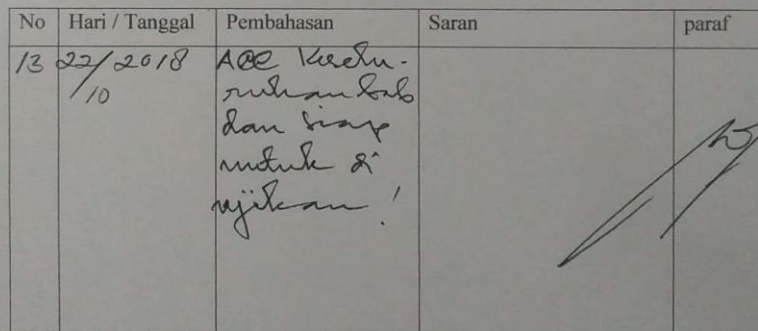 No Hari / Tanggal Pembahasan Saran paraf
13 22/10 2018 ACC Keselu-
ruhan bab
dan siap
untuk di
ujikan!